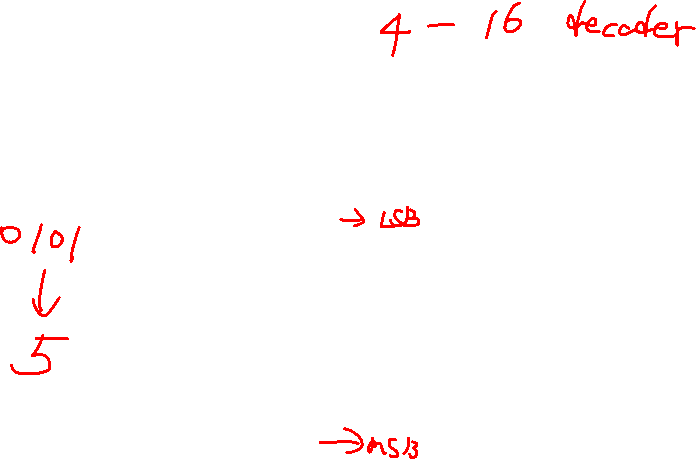 4 - 16 decoder
→ LSB
0101
↓
5
→ MSB